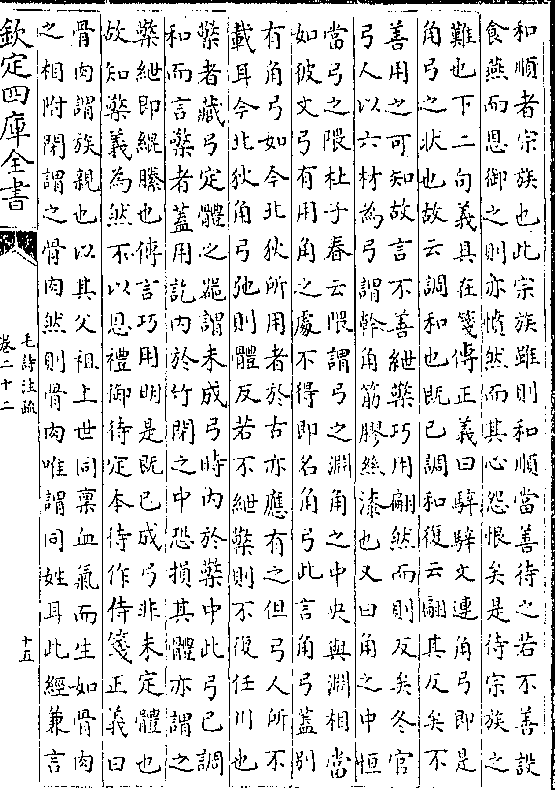 和順者宗族也此宗族雖則和順當善待之若不善設
食燕而恩御之則亦憤然而其心怨恨矣是待宗族之
難也下二句義具在箋傳正義曰騂騂文連角弓即是
角弓之狀也故云調和也既已調和復云翩其反矣不
善用之可知故言不善紲檠巧用翩然而則反矣冬官
弓人以六材為弓謂幹角筋膠絲漆也又曰角之中恒
當弓之隈杜子春云隈謂弓之淵角之中央與淵相當
如彼文弓有用角之處不得即名角弓此言角弓蓋別
有角弓如今北狄所用者於古亦應有之但弓人所不
載耳今北狄角弓弛則體反若不紲檠則不復任用也
檠者藏弓定體之器謂未成弓時内於檠中此弓已調
和而言檠者蓋用訖内於竹閉之中恐損其體亦謂之
檠紲即緄縢也傳言巧用明是既已成弓非未定體也
故知檠義為然不以恩禮御待定本待作侍箋正義曰
骨肉謂族親也以其父祖上世同稟血氣而生如骨肉
之相附閉謂之骨肉然則骨肉唯謂同姓耳此經兼言
欽定四庫全書
毛詩注疏
卷二十二
十五